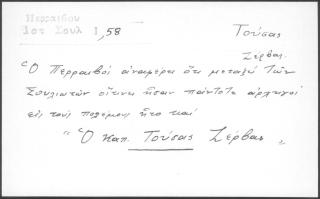 Περραιβου
Ιστ Σουλ 1, 58
Τούσας
Ζέρβας
Ὁ Περραιβός ἀναφέρει ὅτι μεταξύ τῶν
Σουλιωτῶν οἵτινες ἦσαν πάντοτε ἀρχηγοί
εἰς τούς πολέμους ἦτο καί
"Ὁ Καπ. Τούσας Ζέρβας"